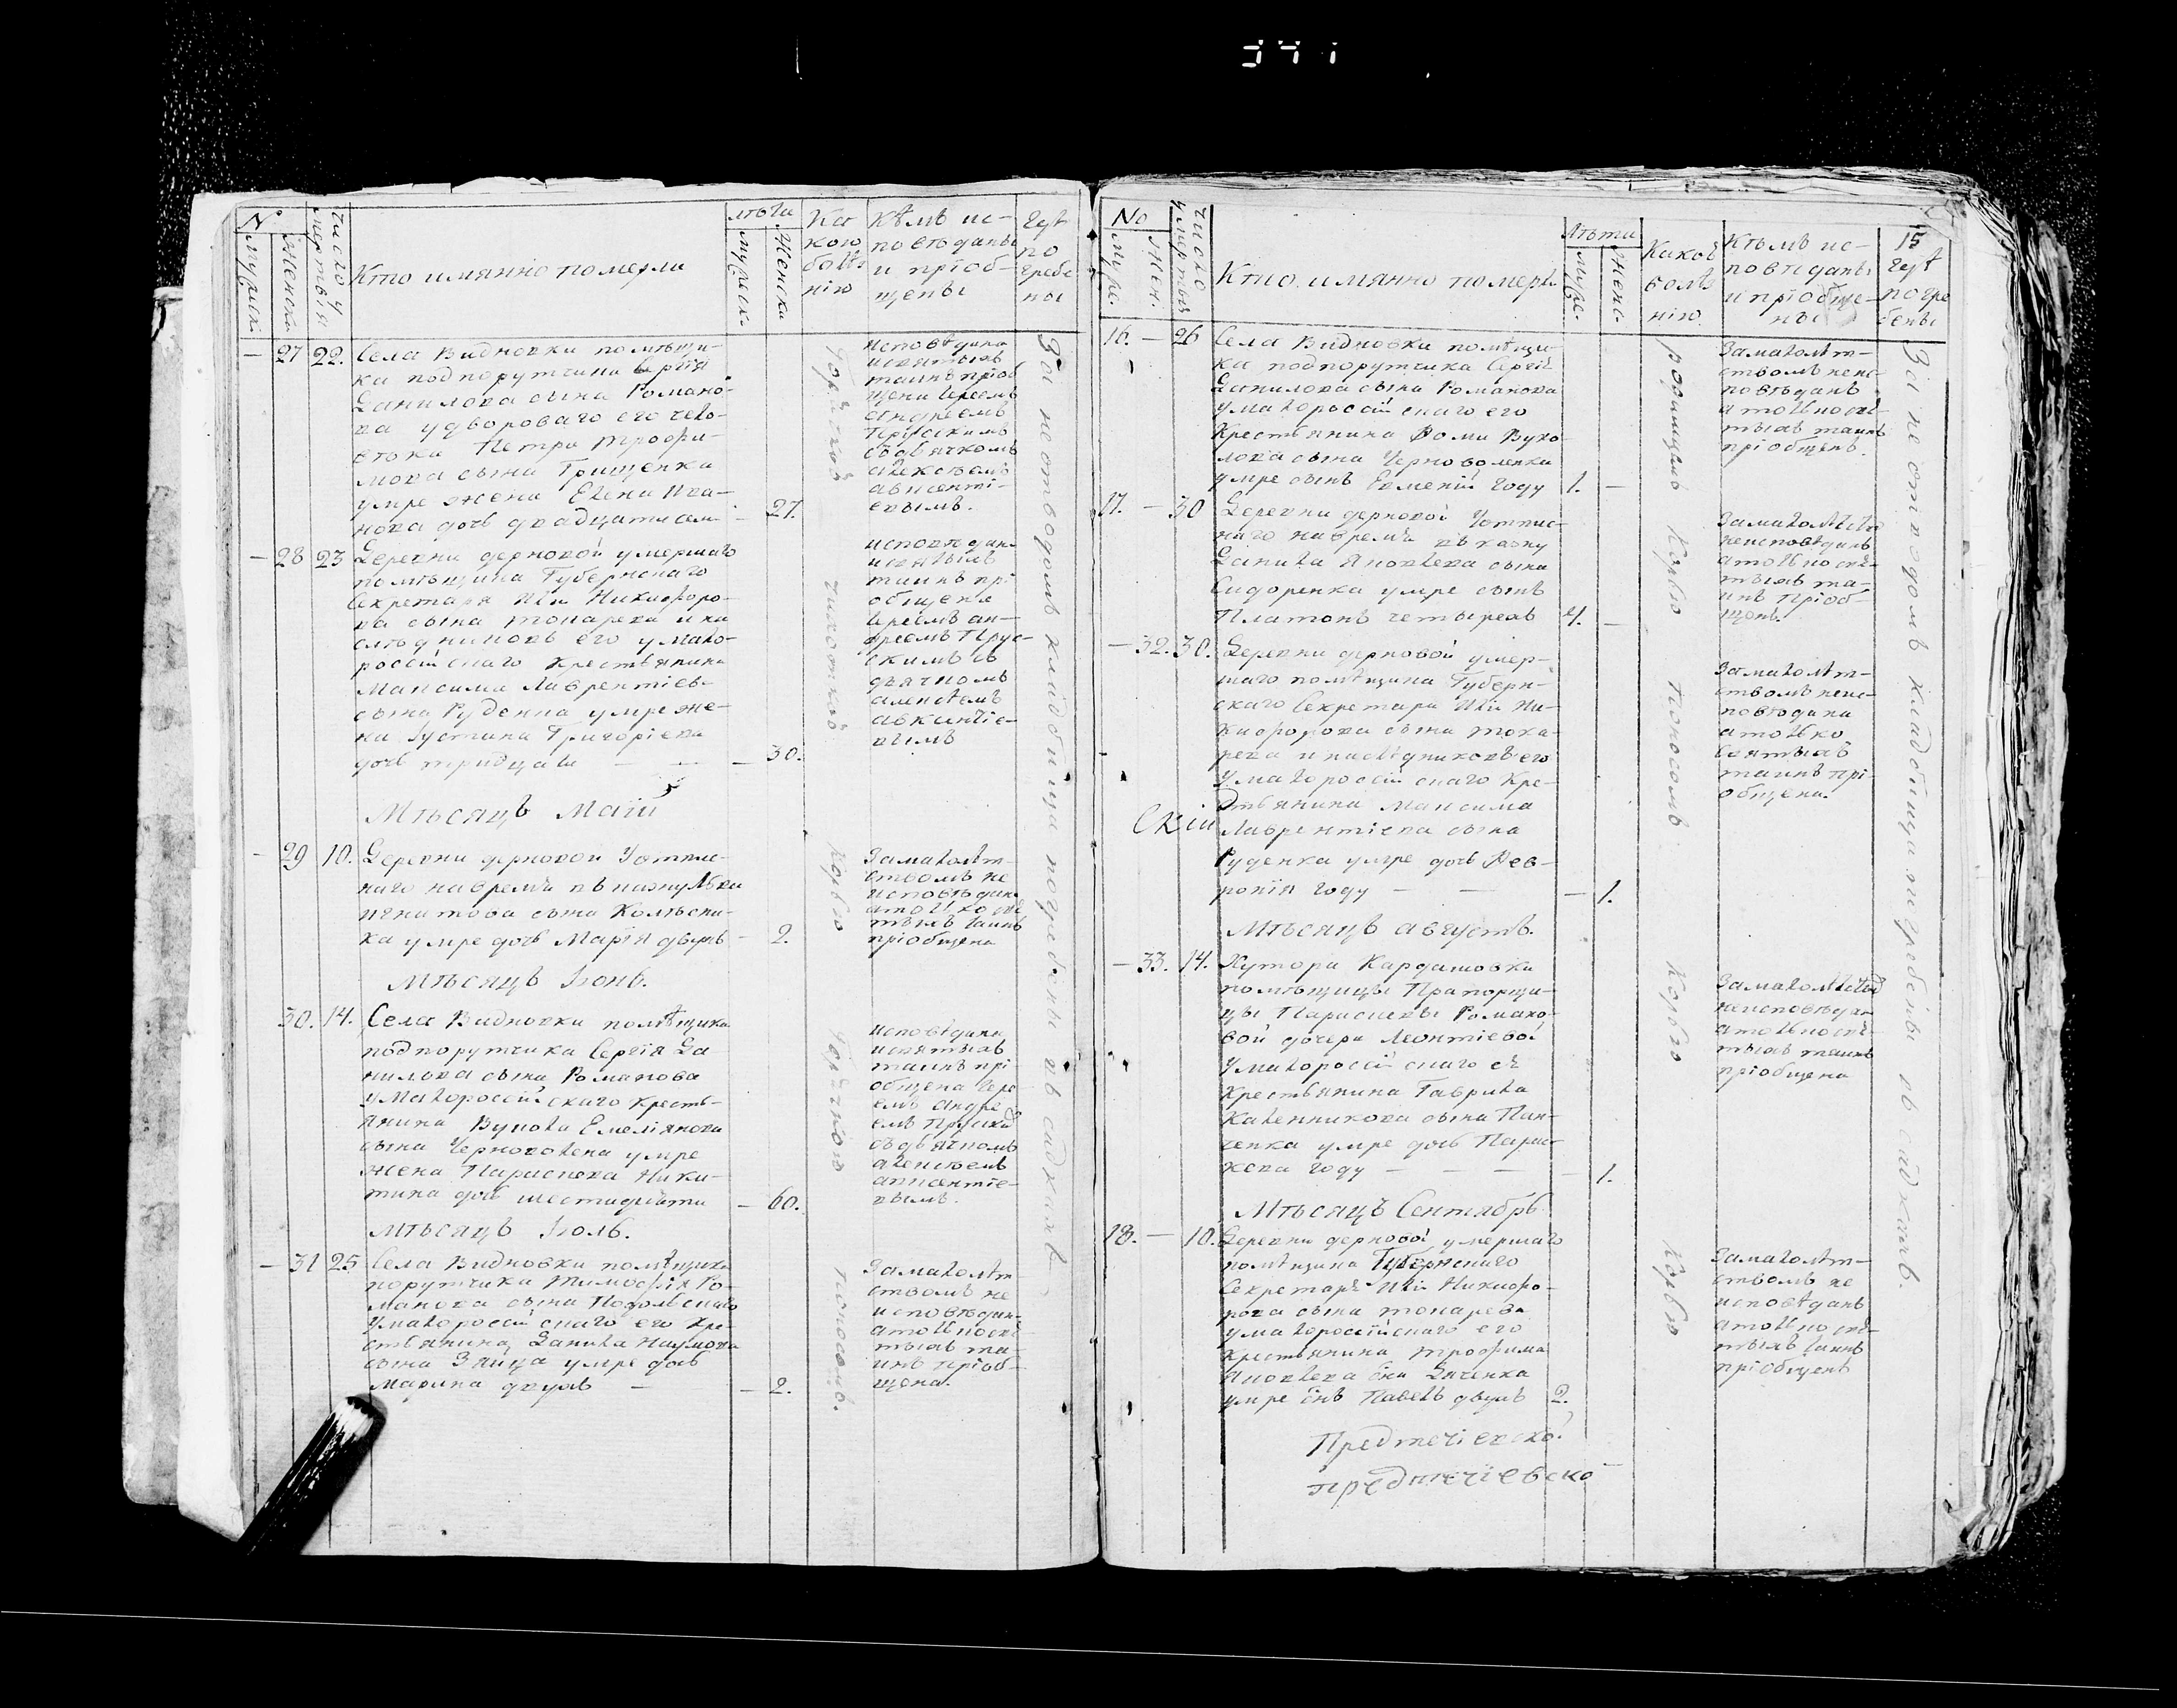 N°
Мужеск.
Женски.
число умертвія
Кто имянно померли
лѣта
мужеск.
Женски
Ка
кою
болѣ
нію
Кѣмъ ис-
повѣданы
и пріоб-
щены
Гдѣ
по
гребе
ны
— 27 22. Села Видновки помѣщи-
ка подпорутчика Сергія
Данилова сына Романо-
ва у двороваго его чело-
века Петра Трофи-
мова сына Грищенка
умре жена Елена Ива-
нова дочь двадцати сем — 27.
исповѣдана
и святыхъ
таинъ пріоб
щена Іереемъ
Андреемъ
съ дьячкомъ
Алексѣемъ
Авксенті-
евымъ.
— 28 23 Деревни дерновой умершаго
помѣщика Губернскаго
Секретаря Ильи Никифоро-
ва сына Токарева и на
слѣдниковъ его у мало-
россійскаго крестьянина
Максима Лаврентіев-
сына Руденка умре же-
на Іустина Григоріева
дочь тридцати — — — 30.
исповѣдана
и святыхъ
таинъ прі
общена
Іереемъ Ан-
дреемъ Прус-
скимъ съ
дьячкомъ
Алексѣемъ
Авксентіе-
вымъ
чихоткою
Мѣсяцъ Маій
— 29 10. Деревни дерновой
наго на время въ казну
Игнатова сына Колѣсни-
ка умре дочь Марія двухъ — 2.
корью
За малолѣт-
ствомъ не
исповѣдана
а только свя
тыхъ таинъ
пріобщена
Мѣсяцъ Іюнь.
30. 14. Села Видновки помѣщика
подпорутчика Сергія Да-
нилова сына Романова
у малороссійскаго кресть-
янина Вукола Емеліянова
сына Черноволена умре
жена Параскева Ники-
тина дочь шестидесяти — 60.
горячкою
исповѣдана
и святыхъ
таинъ прі
общена Іере
емъ Андре
емъ Прускимъ
съ дьячкомъ
Алексѣемъ
Авксентіе-
вымъ.
Мѣсяцъ Іюль.
— 31 25 Села Видновки помѣщика
порутчика Тимофѣя Ро-
манова сына Подольскаго
у малороссійскаго его кре-
стьянина Данила Наумова
сына Заица умре дочь
Марина двухъ — — 2.
поносомъ.
За малолѣт
ствомъ не
исповѣдан-
а только свя
тыхъ та-
инъ пріоб-
щена.
За неотводомъ кладбища погребены въ садкахъ
No
Муже.
Жен.
Число умертвія
Кто имянно померъ
Лѣта
Муже.
Женс.
Какою
болѣ
нію
Кѣмъ ис-
повѣданы
и пріобще-
ны
15
Гдѣ
погре
бены
16. — 26 Села Видновки помѣщи-
ка подпорутчика Сергія
Данилова сына Романова
у малороссійскаго его
Крестьянина Фомы Вуко
лова сына Черноволенка
умре сынъ Евменій году 1. —
родимцемъ
За малолѣт-
ствомъ неис-
повѣданъ
а только свя-
тыхъ таинъ
пріобщенъ.
17. — 30 Деревни дерновой
наго на время въ казну
Данила Яковлева сына
Сидоренка умре сынъ
Платонъ четырехъ 4. —
Корью
За малолѣтство
неисповѣданъ
а только свя-
тыхъ та-
инъ пріоб-
щенъ.
— 32. 30. Деревни дерновой умер-
шаго помѣщика Губерн-
скаго Секретаря Ильи Ни-
кифорова сына Тока-
рева и наслѣдниковъ его
у малороссійскаго Кре-
стьянина Максима
Скій
Лаврентіева сына
Руденка умре дочь Фев-
ронія году — — — 1.
поносомъ
За малолѣт-
ствомъ неис-
повѣдана
а только
Святыхъ
таинъ прі-
общена.
Мѣсяцъ Августъ.
— 33. 14. Хутора Кардашовки
помѣщицы Прапорщи-
цы Параскевы Романо-
вой дочери Леонтіевой
у малороссійскаго еѣ
крестьянина Гаврила
Калениковa сына Пан-
ченка умре дочь Парас-
кева году — — — — 1.
Корью
За малолѣтство
неисповѣдан
а только свя-
тыхъ таинъ
пріобщена
Мѣсяцъ Сентябрь
18. — 10. Деревни дерновой умершаго
помѣщика Губернскаго
Секретарѣ Ильи Никифо-
рова сына Токарева
у малороссійскаго его
крестьянина Трофима
Яковлева сна Дяченка
умре снъ Павелъ двухъ 2.
Корью
За малолѣт-
ствомъ не
исповѣданъ
а только свя-
тыхъ таинъ
пріобщенъ
За неотводомъ кладбища погребены въ садкахъ.
Предтечіевско
предтечіевско